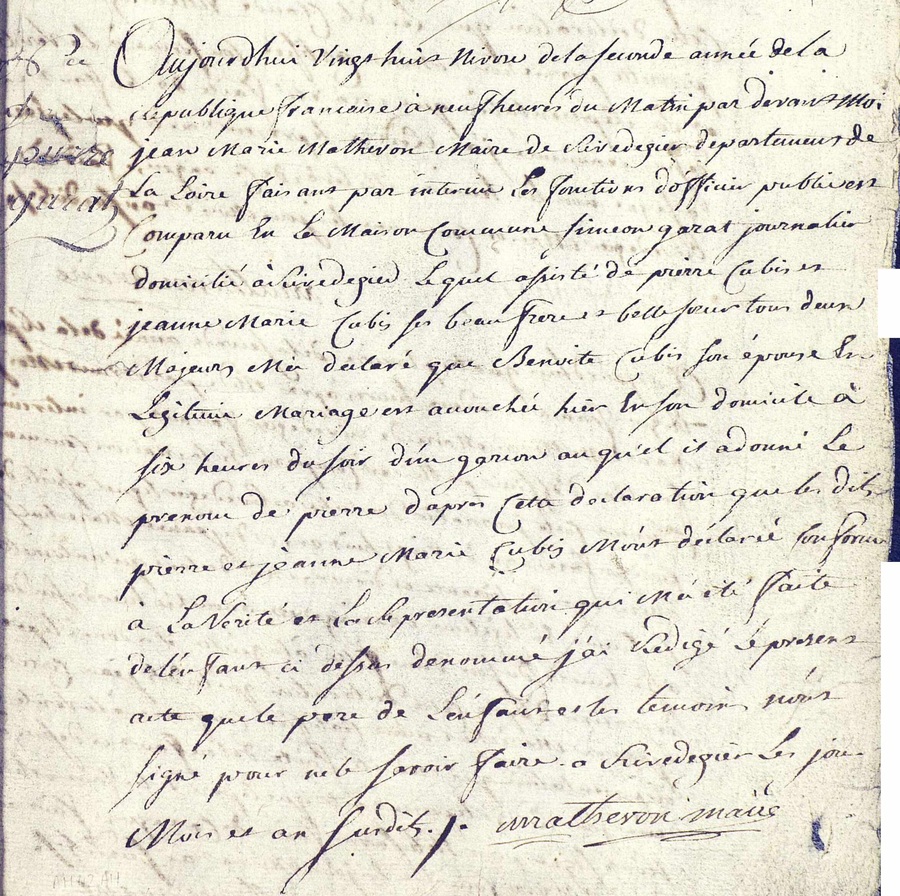 Aujourdhui vingt huit Nivose de la seconde année de la
Republique francoise à neuf heures du Matin par devant Moi
jean Marie Matheron Maire de Rivedegier departement de
La Loire faisant par interim Les fonctions dofficier public est
Comparu En La Maison Commune simeon garat journalier
domicilié à Rivedegier Lequel assisté de pierre Cubis et
jeanne Marie Cubis ses beau frere et belle soeur tous deux
Majeurs M'a declaré que Benoite Cubis son épouse En
Legitime Mariage est accouchée hier En son domicile à
six heures du soir d'un garcon auquel il a donné Le
prenom de pierre d'apres Cette declaration que les dits
pierre et jeanne Marie Cubis M'ont déclaré Conforme
à La Verité et La Representation qui M'a été faite
de l'enfant ci dessus denommé j'ai Redigé Le present
acte que le pere de L'enfant et les temoins n'ont
signé pour ne le savoir faire. a Rivedegier Les jour
Mois et an susdits.
Matheron maire
garat